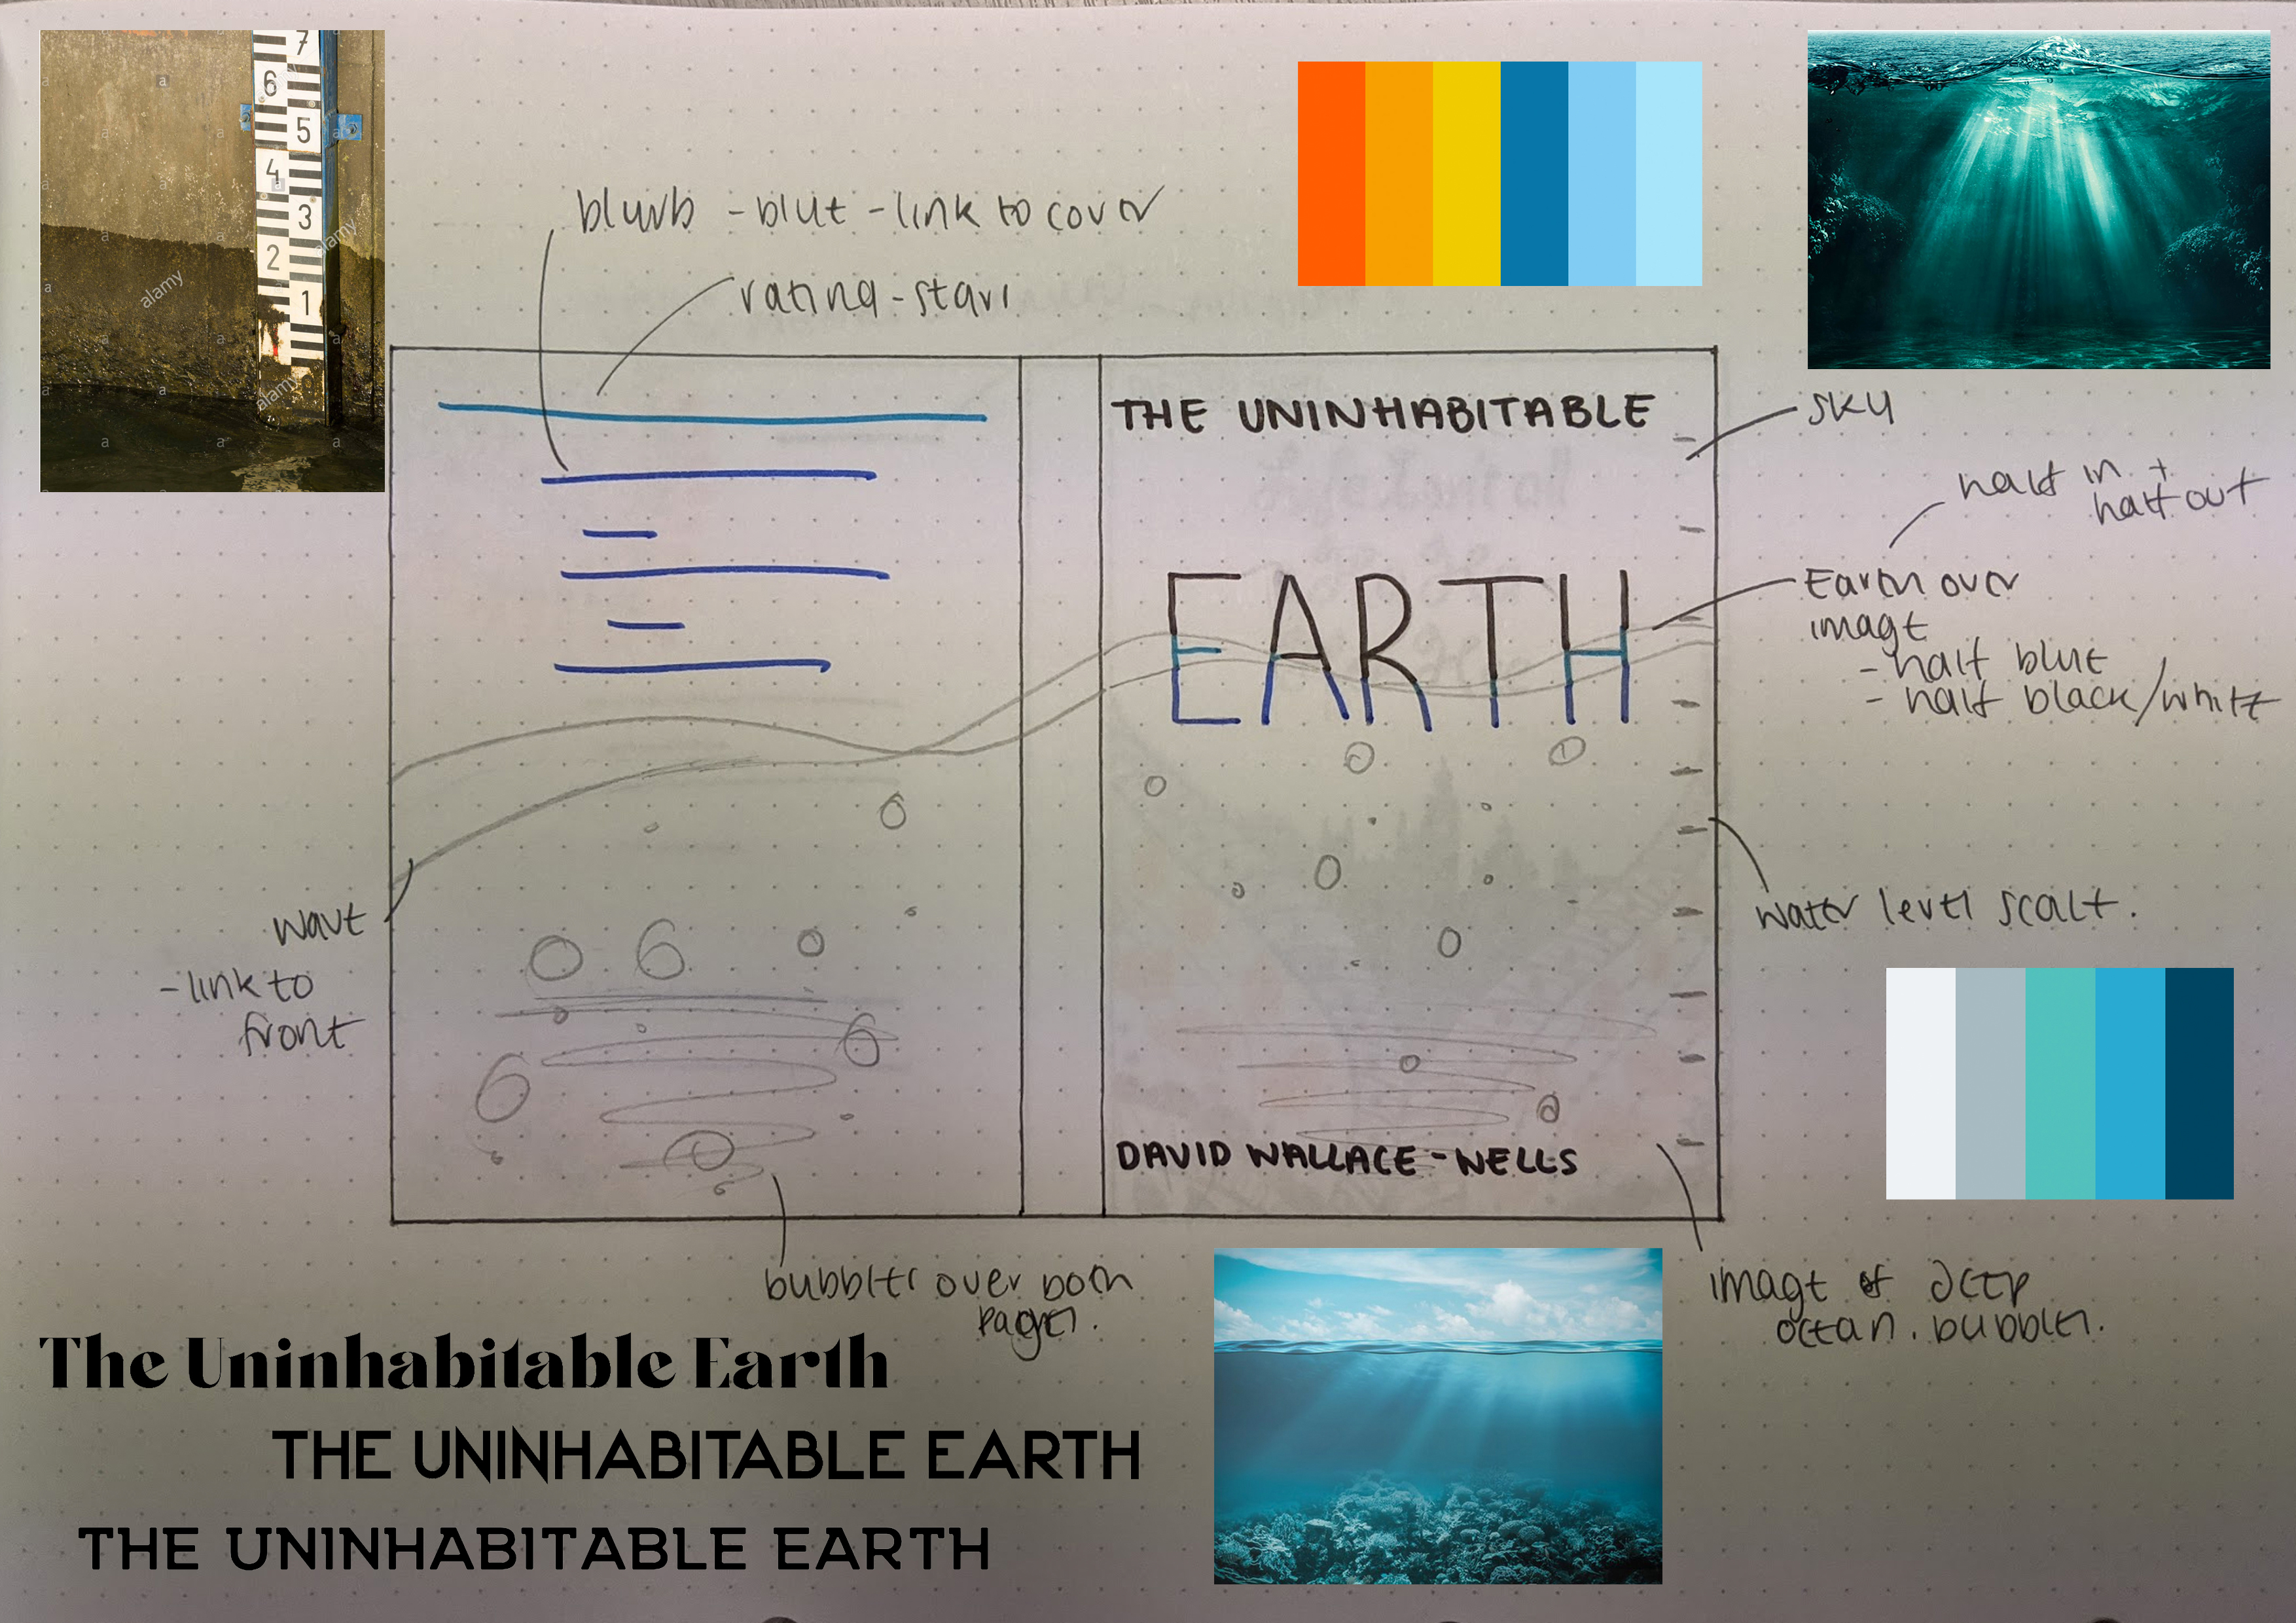 7
6
5
4
3
2
1
alamy
alamy
alamy
a
blurb - blue - link to cover
rating - stars
THE UNINHABITABLE
EARTH
DAVID WALLACE-WELLS
sky
half in +
half out
Earth over
image
- half blue
- half black/white
water level scale.
wave
- link to
front
bubbles over both
pages.
image of deep
ocean. bubbles.
The Uninhabitable Earth
THE UNINHABITABLE EARTH
THE UNINHABITABLE EARTH